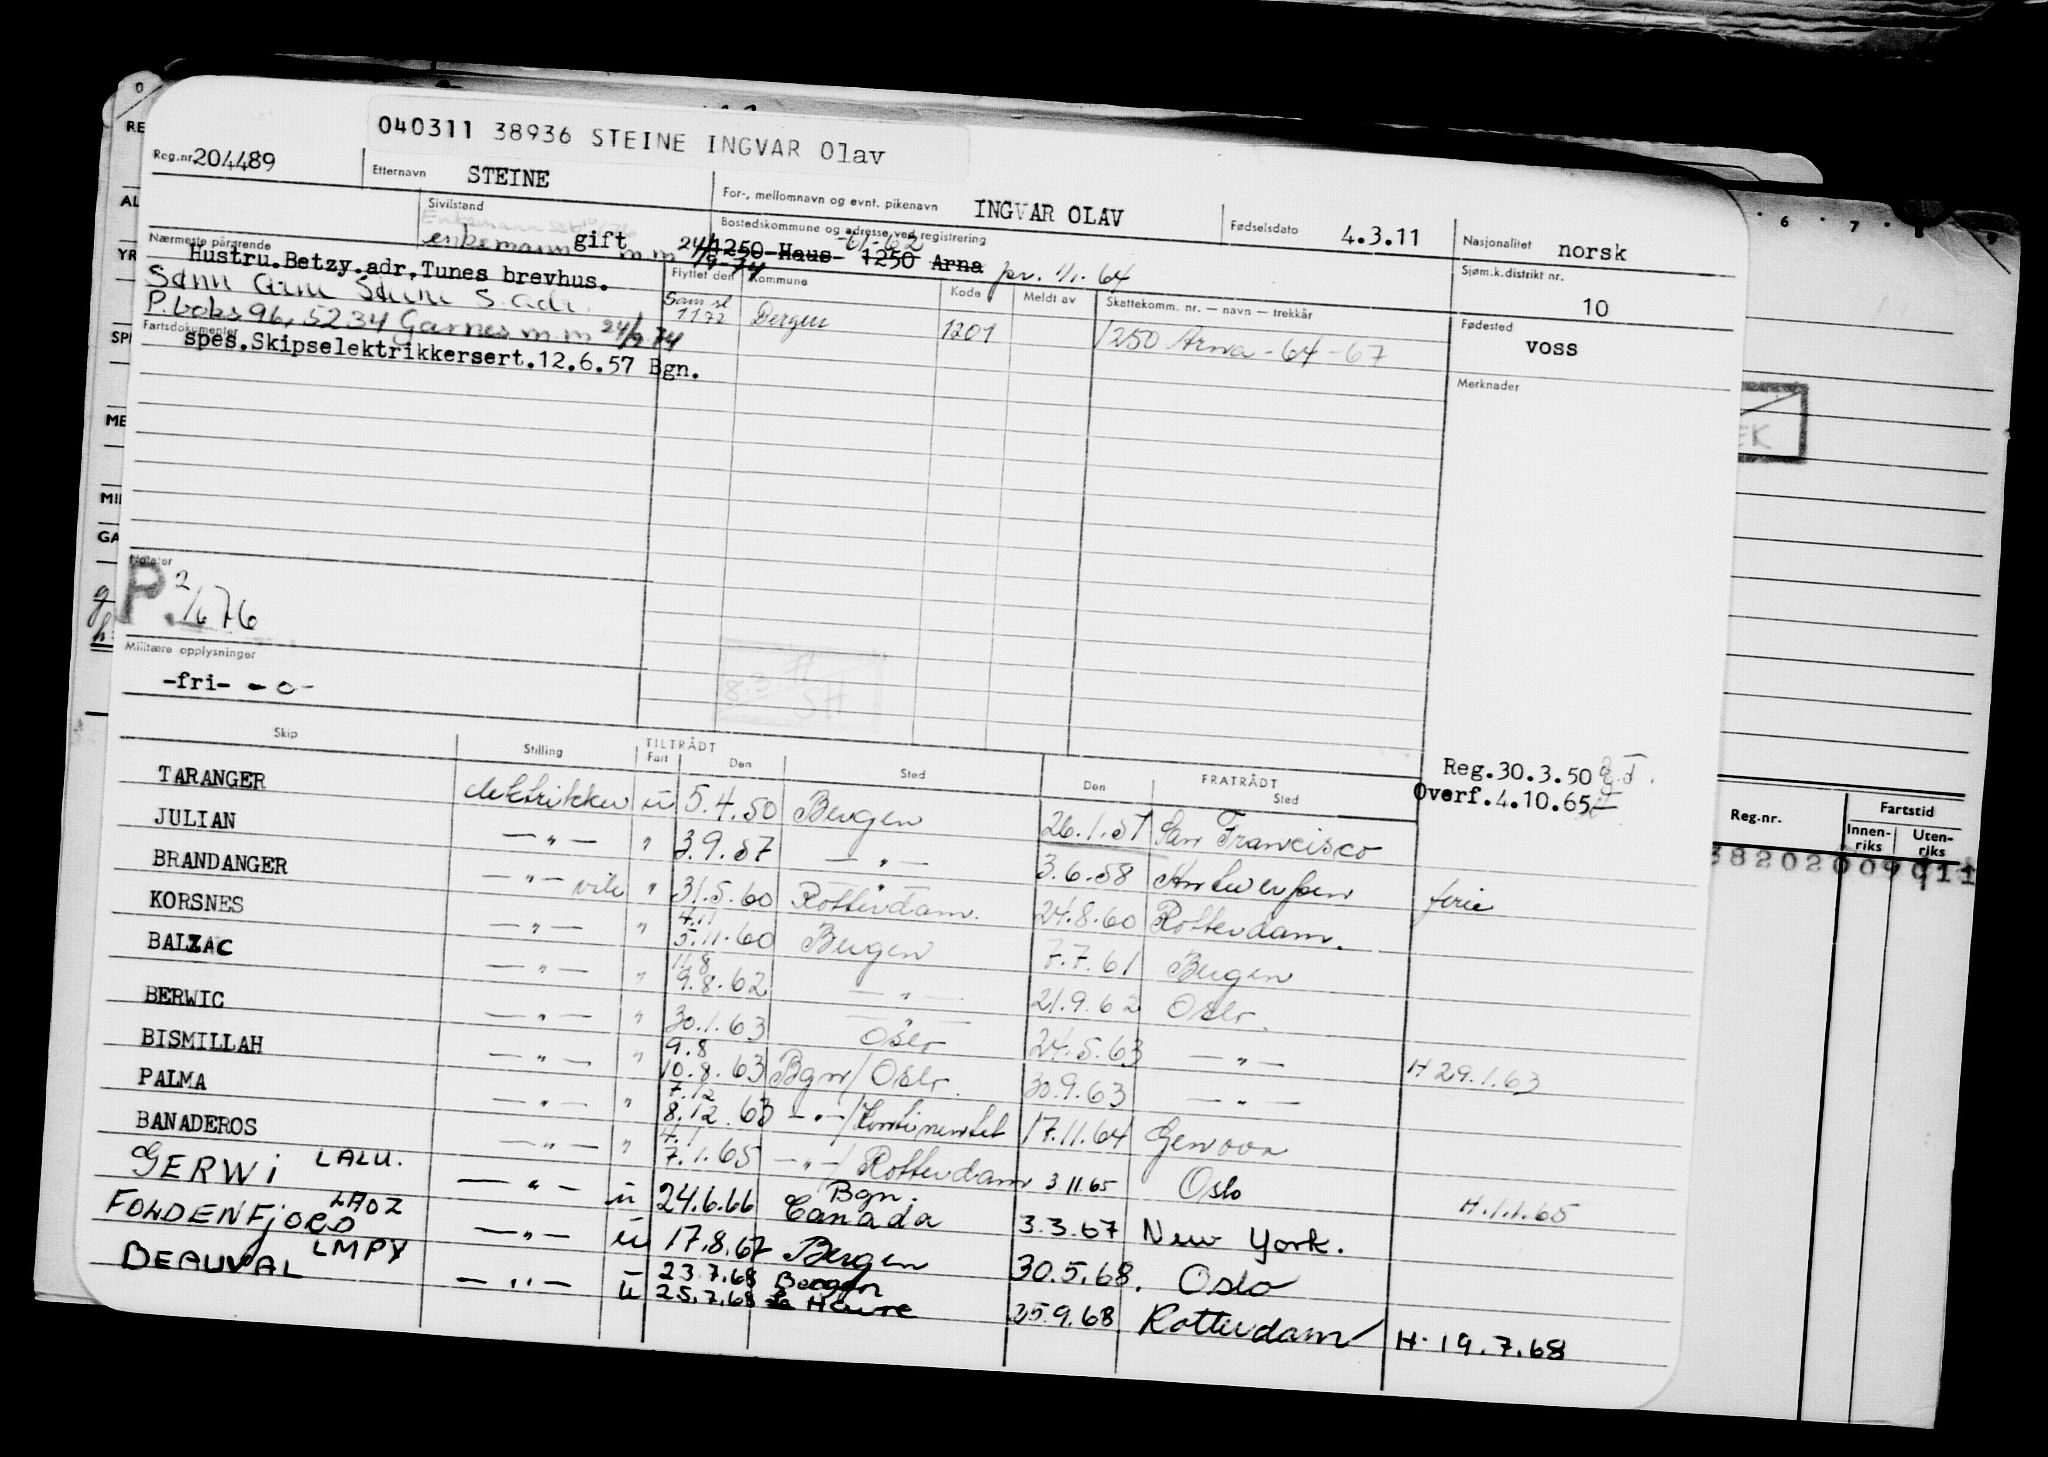 040311 38936 STEINE INGVAR Olav
Reg.nr. 204489
Etternavn STEINE
For-, mellomnavn og evnt. pikenavn INGVAR OLAV
Fødselsdato 4.3.11
Nasjonalitet norsk
Sivilstand gift
enkemann m.m 24/9-74
Bostedskommune og adresse ved registrering
1250 Haus -61-62 1250 Arna pr. 1/1.64
Sjøm.k.distrikt nr. 10
Nærmeste pårørende
Hustru.Betzy.adr.Tunes brevhus.
P.boks 96, 5234 Garnes m.m 24/9 74
Flyttet den Kommune Kode Meldt av Skattekomm. nr. — navn — trekkår
1172 Bergen 1201 1250 Arna -64-67
Fødested VOSS
Fartsdokumenter
spes.Skipselektrikkersert.12.6.57 Bgn.
Merknader
Notater
P. 2/6 76
Militære opplysninger
-fri- -o-
Skip Stilling TILTRÅDT Fart Den Sted FRATRÅDT Den Sted
Reg.30.3.50
Overf.4.10.65
TARANGER elektrikker u 5.4.50 Bergen 26.1.51 San Francisco
JULIAN —"— " 3.9.57 —"— 3.6.58 Antwerpen ferie
BRANDANGER —"— vik " 31.5.60 Rotterdam. 24.8.60 Rotterdam.
KORSNES —"— " 4.11 5.11.60 Bergen 7.7.61 Bergen
BALZAC —"— " 11.8 9.8.62 —"— 21.9.62 Oslo.
BERWIC —"— " 30.1.63 Oslo 24.5.63 —"— H 29.1.63
BISMILLAH —"— " 9.8 10.8.63 Bgn/Oslo. 30.9.63 —"—
PALMA —"— " 7.12 8.12.63 —"—/Kontinentet 17.11.64 Genova
BANADEROS —"— " 4.1 7.1.65 —"—/Rotterdam 3.11.65 Oslo H.1.1.65
GERWI LALU. —"— u 24.6.66 Bgn. Canada 3.3.67 New York.
FOLDENFJORD LAOZ —"— u 17.8.67 Bergen 30.5.68. Oslo
BEAUVAL LMPY —"— u 23.7.68 Bergen 25.7.68 La Havre 25.9.68 Rotterdam H. 19.7.68
RE
AL
YR
SP
ME
MI
GA
6 7 8 9
EK
Reg.nr. Fartstid
Innenriks Utenriks